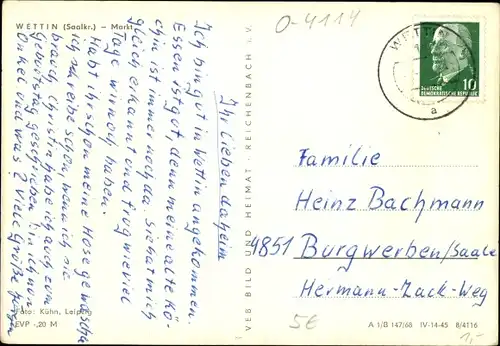 WETTIN (Saalkr.) – Markt
Ihr Lieben daheim
Ich bin gut in Wettin angekommen.
Essen ist gut, denn meine alte Kö-
chin ist immer noch da. Sie hat mich
gleich erkannt und frug wieviel
Tage wir noch haben.
Habt ihr schon meine Hose gewaschen
ich schreibe schon, wenn ich sie
brauch. Christin habe ich auch zum
Geburtstag geschrieben
Onkel und was? Viele Grüße
Foto: Kühn, Leipzig
EVP -,20 M
VEB BILD UND HEIMAT · REICHENBACH i. V.
0-4114
WETTIN
a
10
DEUTSCHE
DEMOKRATISCHE REPUBLIK
Familie
Heinz Bachmann
4851 Burgwerben/Saale
Hermann-Zack-Weg
5€
A 1/B 147/68 IV-14-45 8/4116
1,-